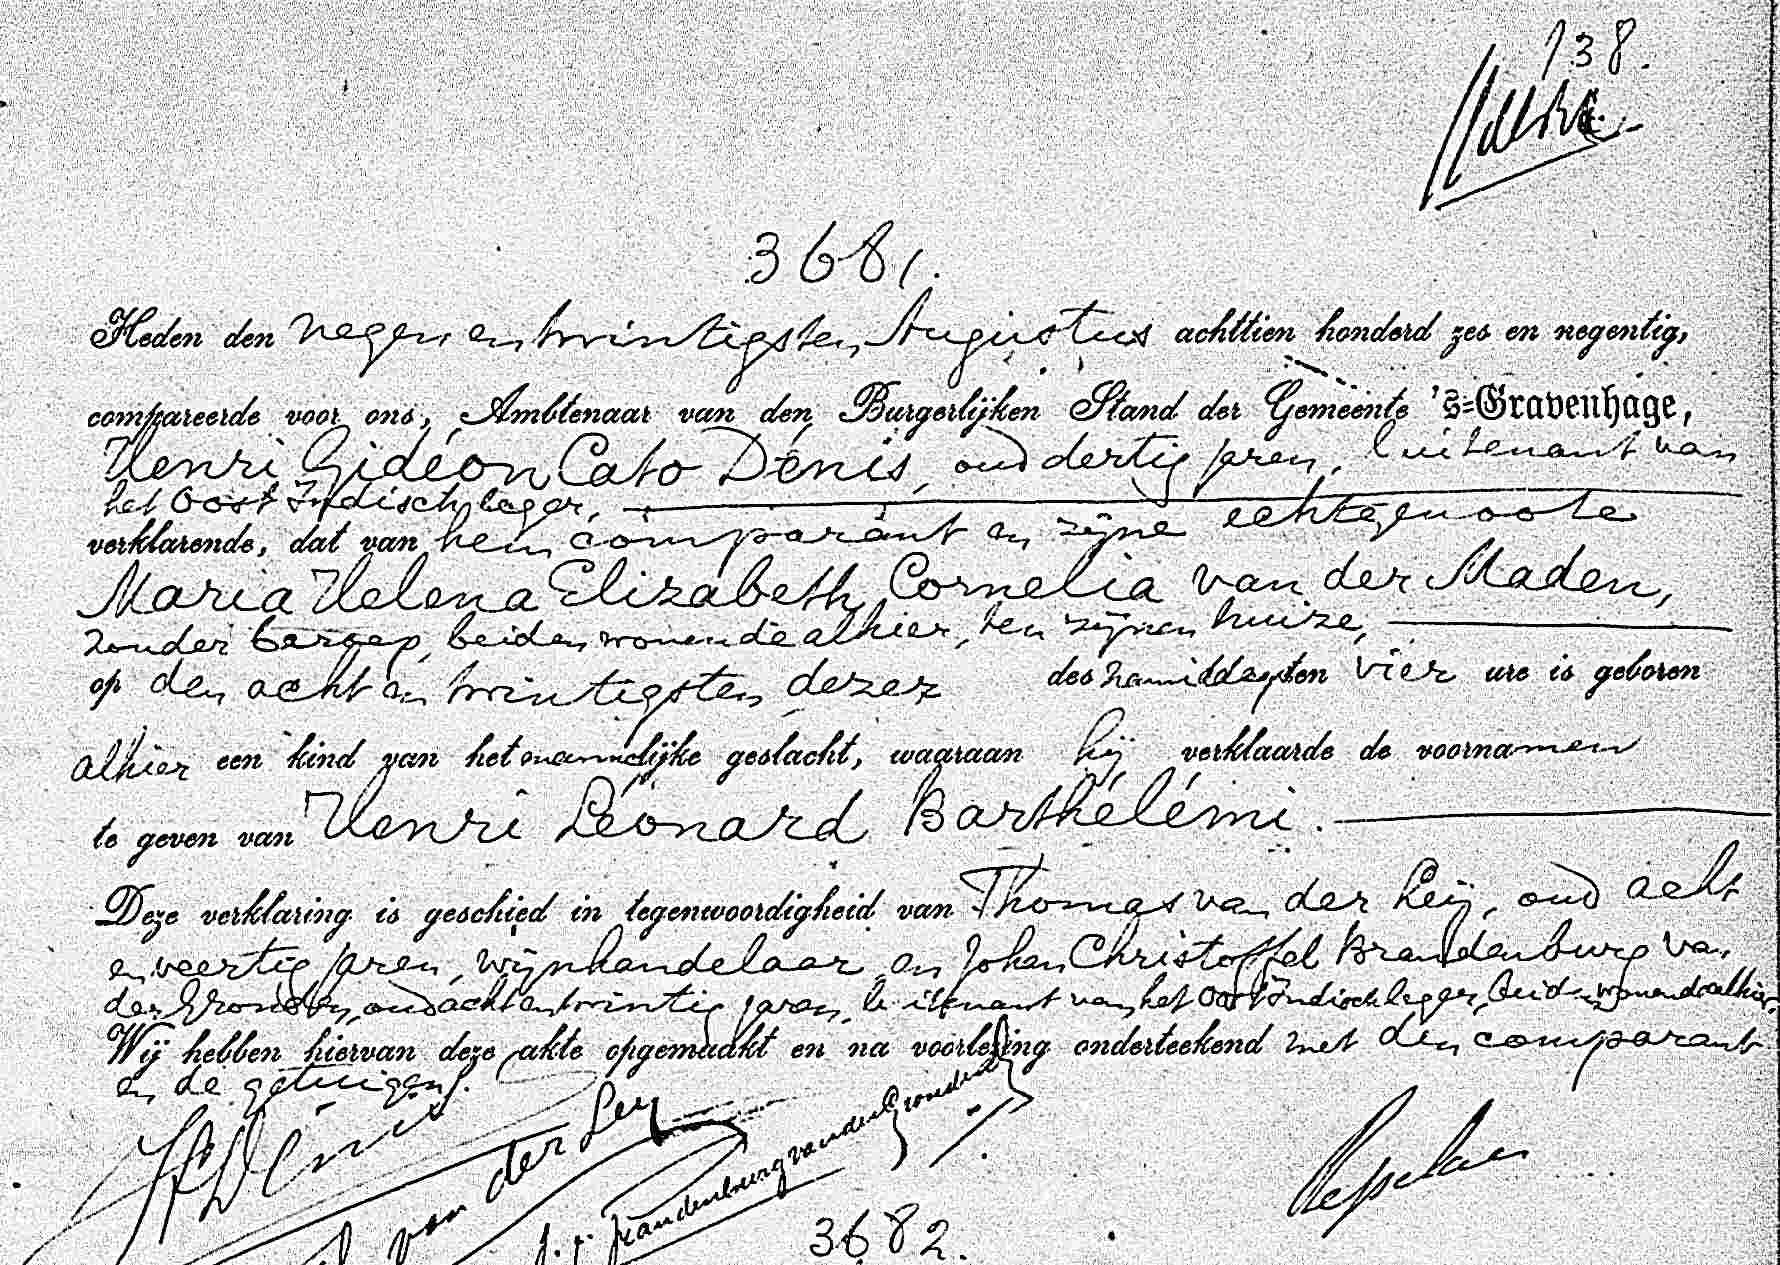 138.
3681.
Heden den negen en twintigsten Augustus achttien honderd zes en negentig,
compareerde voor ons, Ambtenaar van den Burgerlijken Stand der Gemeente 's-Gravenhage,
Henri Gidéon Cato Dénis, oud dertig jaren, luitenant van
het Oost Indisch leger,
verklarende, dat van hem comparant en zijne echtgenoote
Maria Helena Elizabeth Cornelia van der Maden,
zonder beroep, beiden wonende alhier, ten zijnen huize,
op den acht en twintigsten dezer des namiddags ten vier ure is geboren
alhier een kind van het mannelijke geslacht, waaraan hij verklaarde de voornamen
te geven van Henri Léonard Barthélémi.
Deze verklaring is geschied in tegenwoordigheid van Thomas van der Leij, oud acht
en veertig jaren, wijnhandelaar en Johan Christoffel Brandenburg van
der Gronden, oud acht en twintig jaren, luitenant van het Oost Indisch leger, beiden wonende alhier.
Wij hebben hiervan deze akte opgemaakt en na voorlezing onderteekend met den comparant
en de getuigen.
HGC Dénis
van der Ley
J. C. Brandenburg van der Gronden
3682.